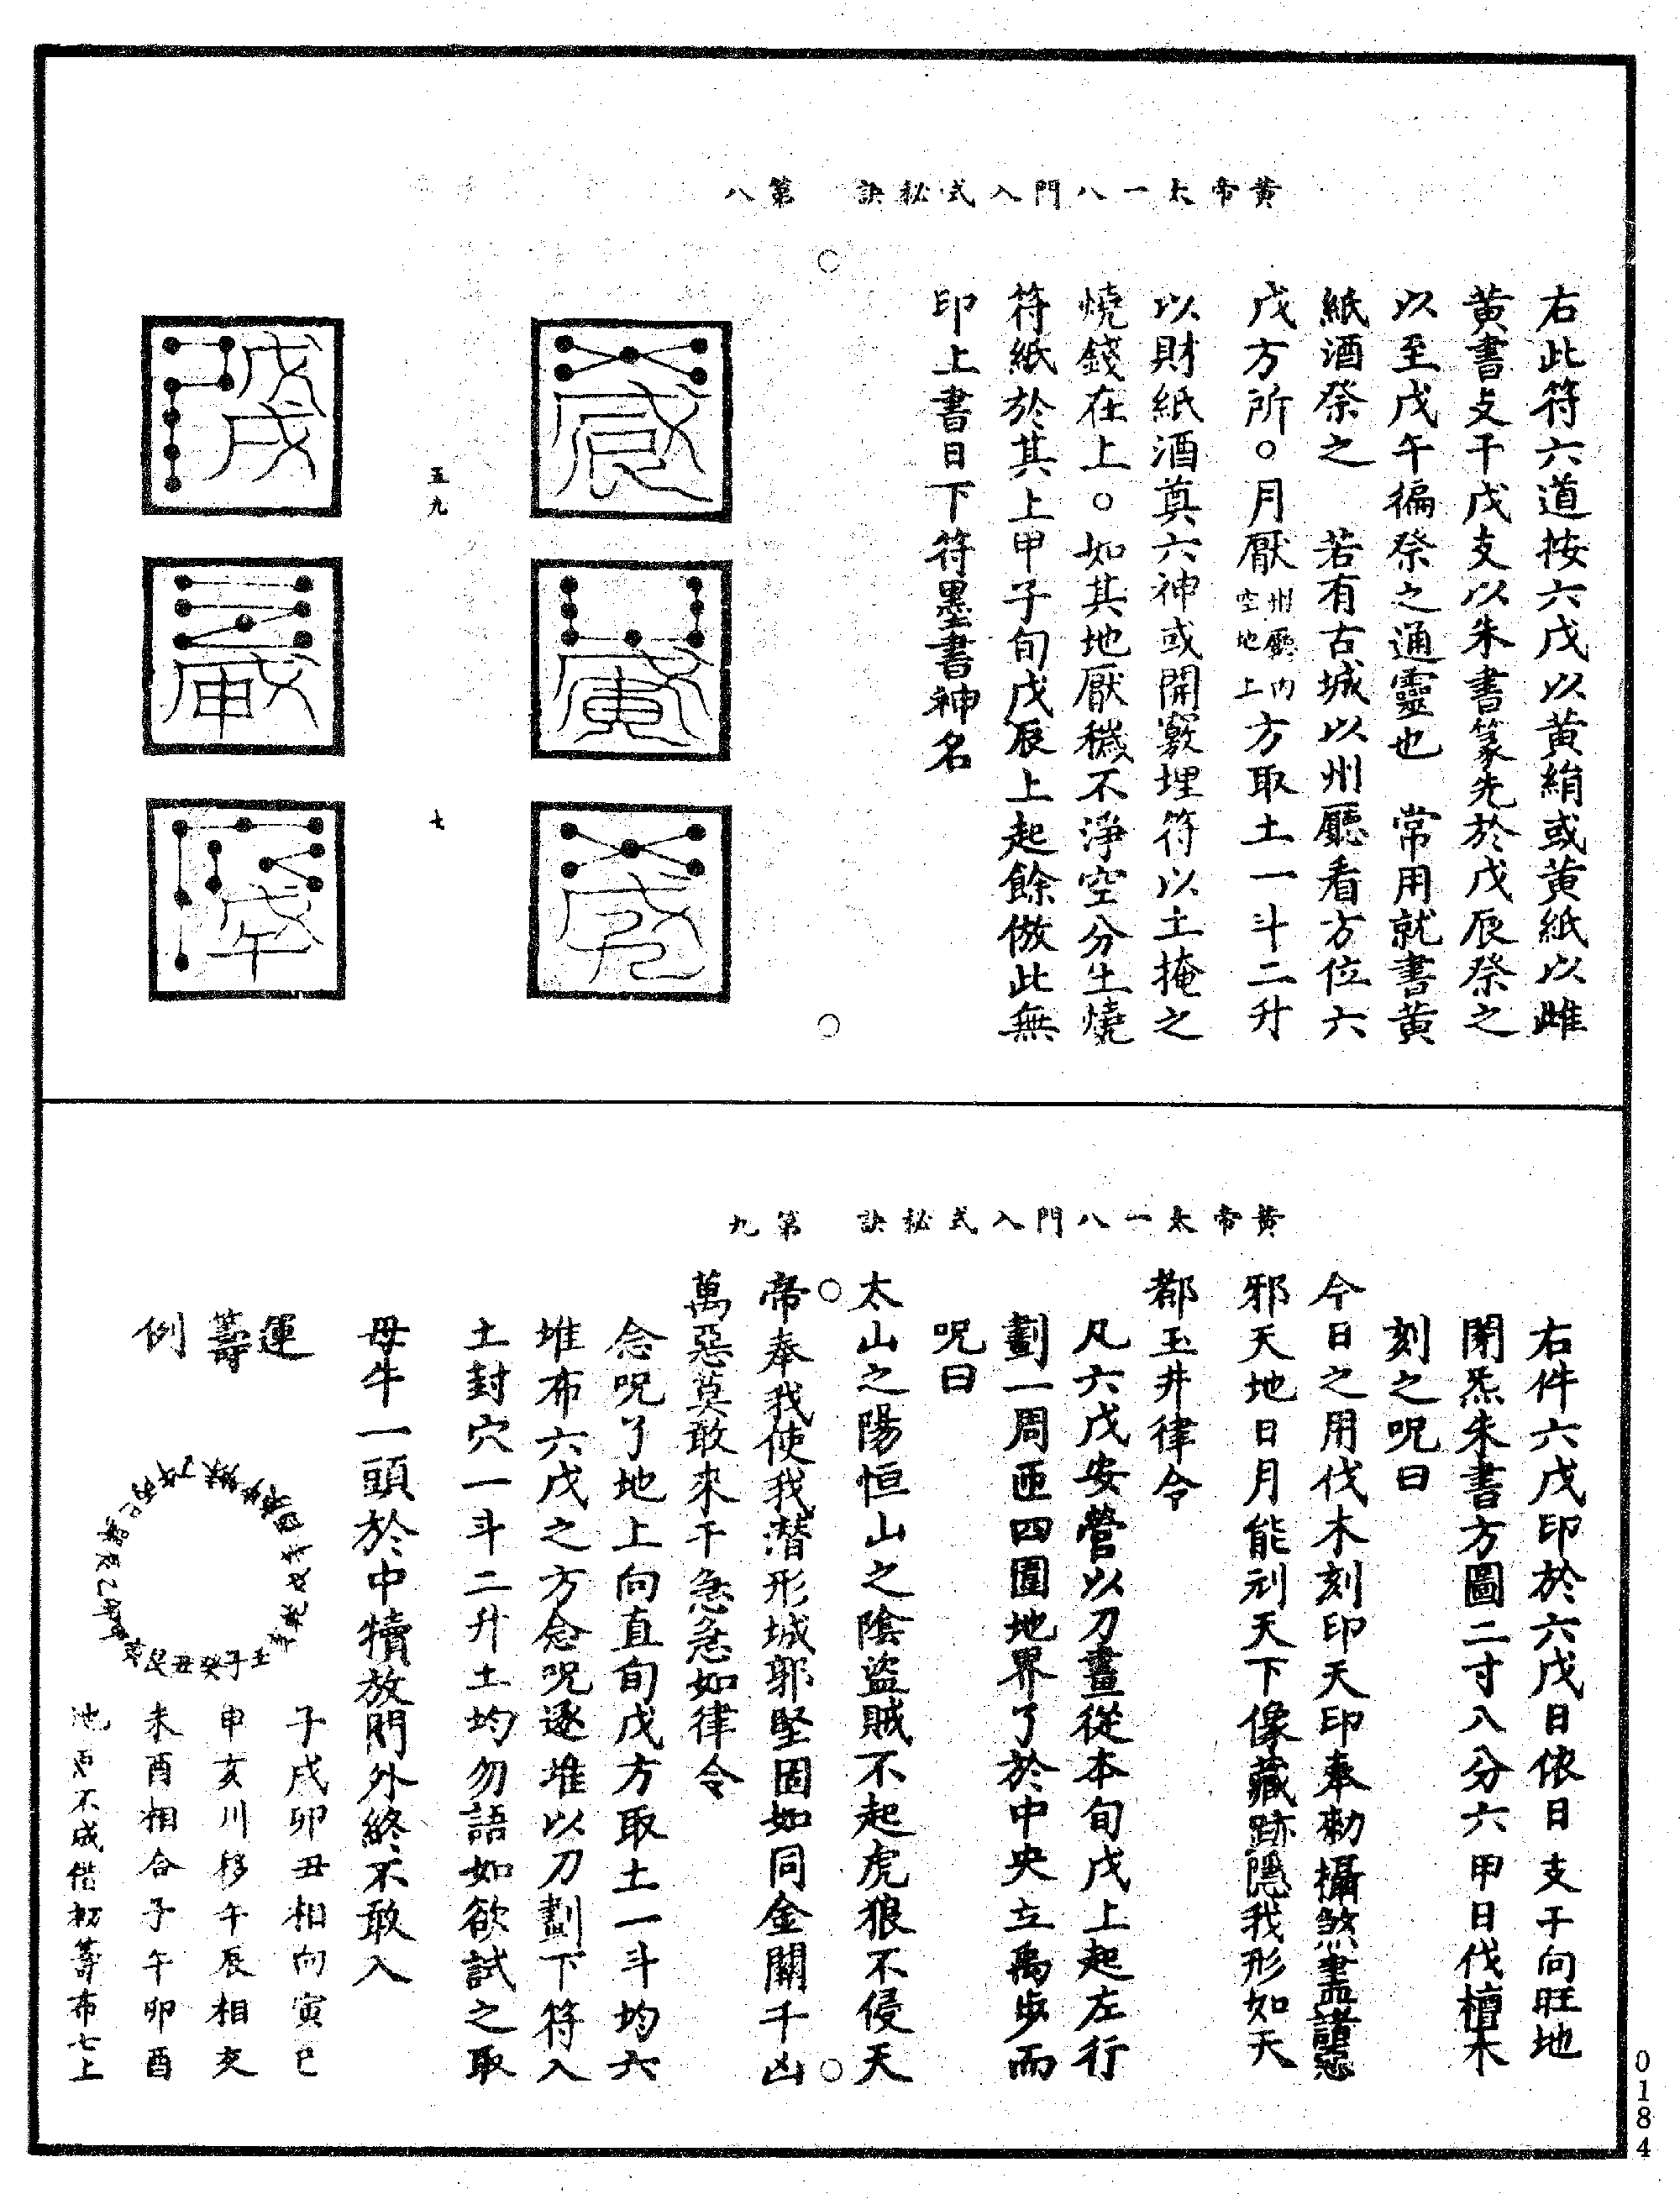 黃帝太一八門入式秘訣　第八
右此符六道按六戊以黃絹或黃紙以雌
黃書支干戊支以朱書篆先於戊辰祭之
以至戊午徧祭之通靈也　常用就書黃
紙酒祭之　若有古城以州廳看方位六
戊方所○月厭州廳內空地上方取土一斗二升
以財紙酒奠六神或開竅埋符以土掩之
燒錢在上○如其地厭穢不淨空分生燒
符紙於其上甲子旬戊辰上起餘倣此無
印上書日下符墨書神名
五九　七
黃帝太一八門入式秘訣　第九
右件六戊印於六戊日依日支干向旺地
閉炁朱書方圖二寸八分六甲日伐檀木
刻之呪曰
今日之用伐木刻印天印奉勑攝煞畫諸惡
邪天地日月能刋天下像藏跡隱我形如天
都玉井律令
凡六戊安營以刀畫從本旬戊上起左行
劃一周匝四圍地界了於中央立禹步而
呪曰
太山之陽恒山之陰盜賊不起虎狼不侵天
帝奉我使我潛形城郭堅固如同金關千凶
萬惡莫敢來干急急如律令
念呪了地上向直旬戊方取土一斗均六
堆布六戊之方念呪逐堆以刀劃下符入
土封穴一斗二升土均勿語如欲試之取
母牛一頭於中犢放門外終不敢入
運
籌
例
子戌卯丑相向寅巳
申亥川移午辰相交
未酉相合子午卯酉
不成借籌布七上
0184